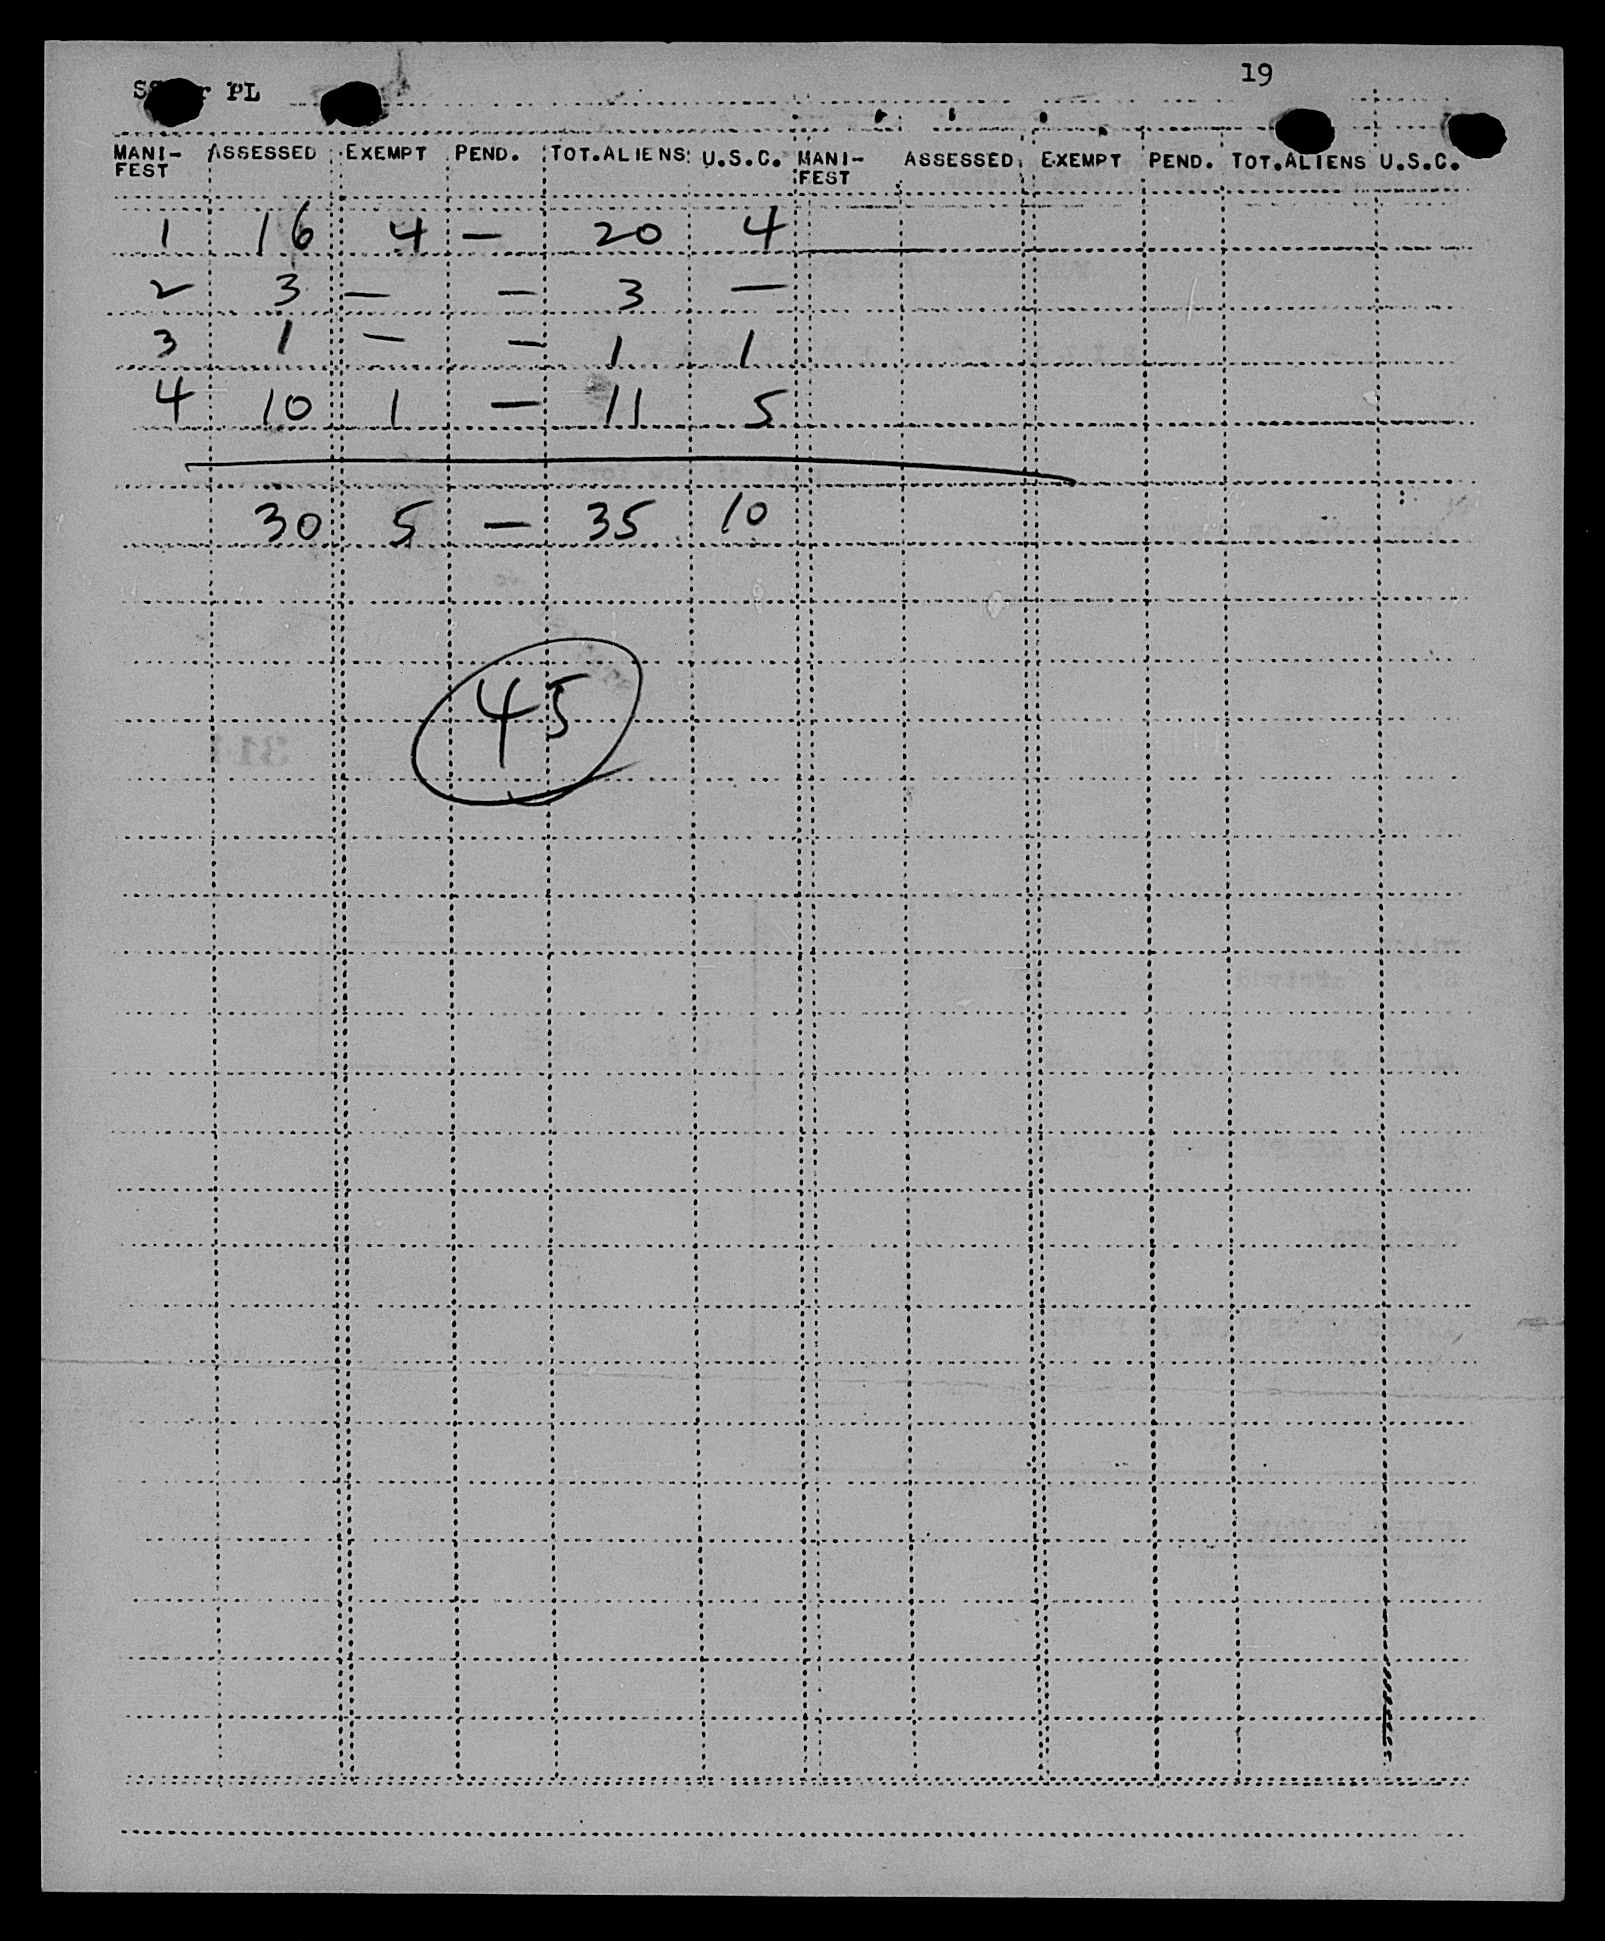 19
PL
MANI-FEST ASSESSED EXEMPT PEND. TOT.ALIENS U.S.C. MANI-FEST ASSESSED EXEMPT PEND. TOT.ALIENS U.S.C.
1 16 4 — 20 4
2 3 — — 3 —
3 1 — — 1 1
4 10 1 — 11 5
30 5 — 35 10
45